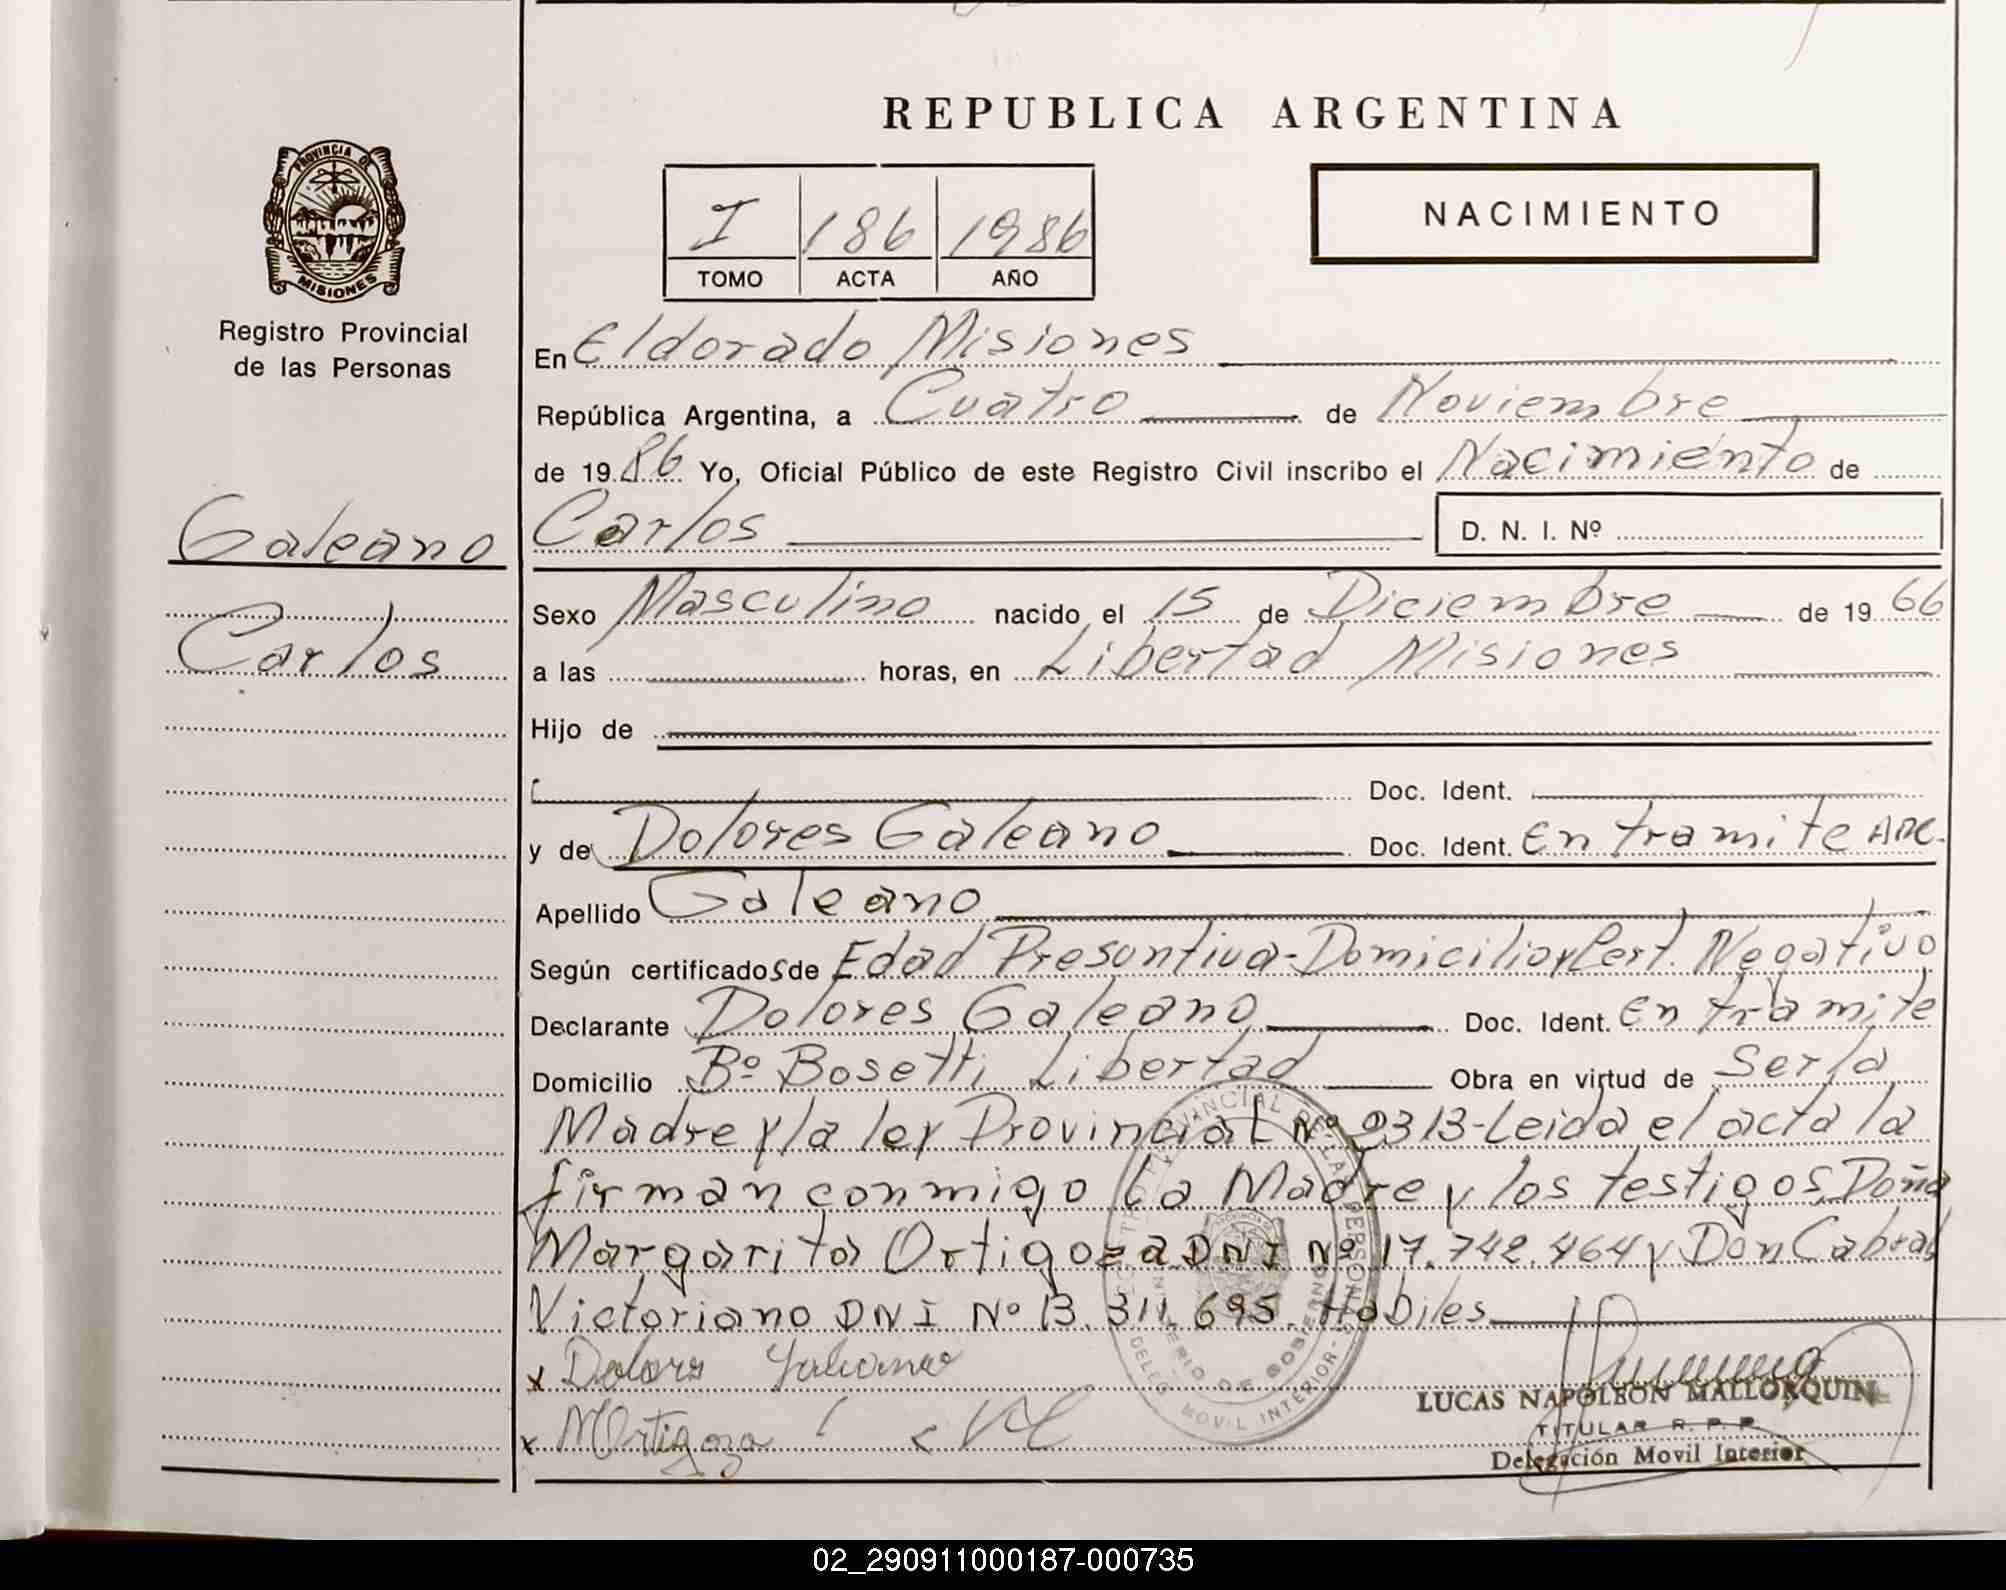 REPUBLICA ARGENTINA
NACIMIENTO
I 186 1986
TOMO ACTA AÑO
PROVINCIA DE
MISIONES
Registro Provincial
de las Personas
Galeano
Carlos
En Eldorado Misiones
República Argentina, a Cuatro de Noviembre
de 1986 Yo, Oficial Público de este Registro Civil inscribo el Nacimiento de
Carlos D. N. I. Nº
Sexo Masculino nacido el 15 de Diciembre de 19 66
a las horas, en Libertad Misiones
Hijo de
Doc. Ident.
y de Dolores Galeano Doc. Ident. En tramite ARC.
Apellido Galeano
Según certificados de Edad Presuntiva-Domicilio y Cert. Negativo
Declarante Dolores Galeano Doc. Ident. En tramite
Domicilio Bº Bosetti Libertad Obra en virtud de Ser la
Madre y la ley Provincial Nº 2313-Leida el acta la
firman conmigo la Madre y los testigos Doña
Margarita Ortigoza DNI Nº 17.742.464 y Don Cabral
Victoriano DNI Nº 13.311.695. Habiles
x Dolores Galeano
x MOrtigoza
LUCAS NAPOLEON MALLORQUIN
TITULAR R. P. P.
Delegación Movil Interior
02_290911000187-000735